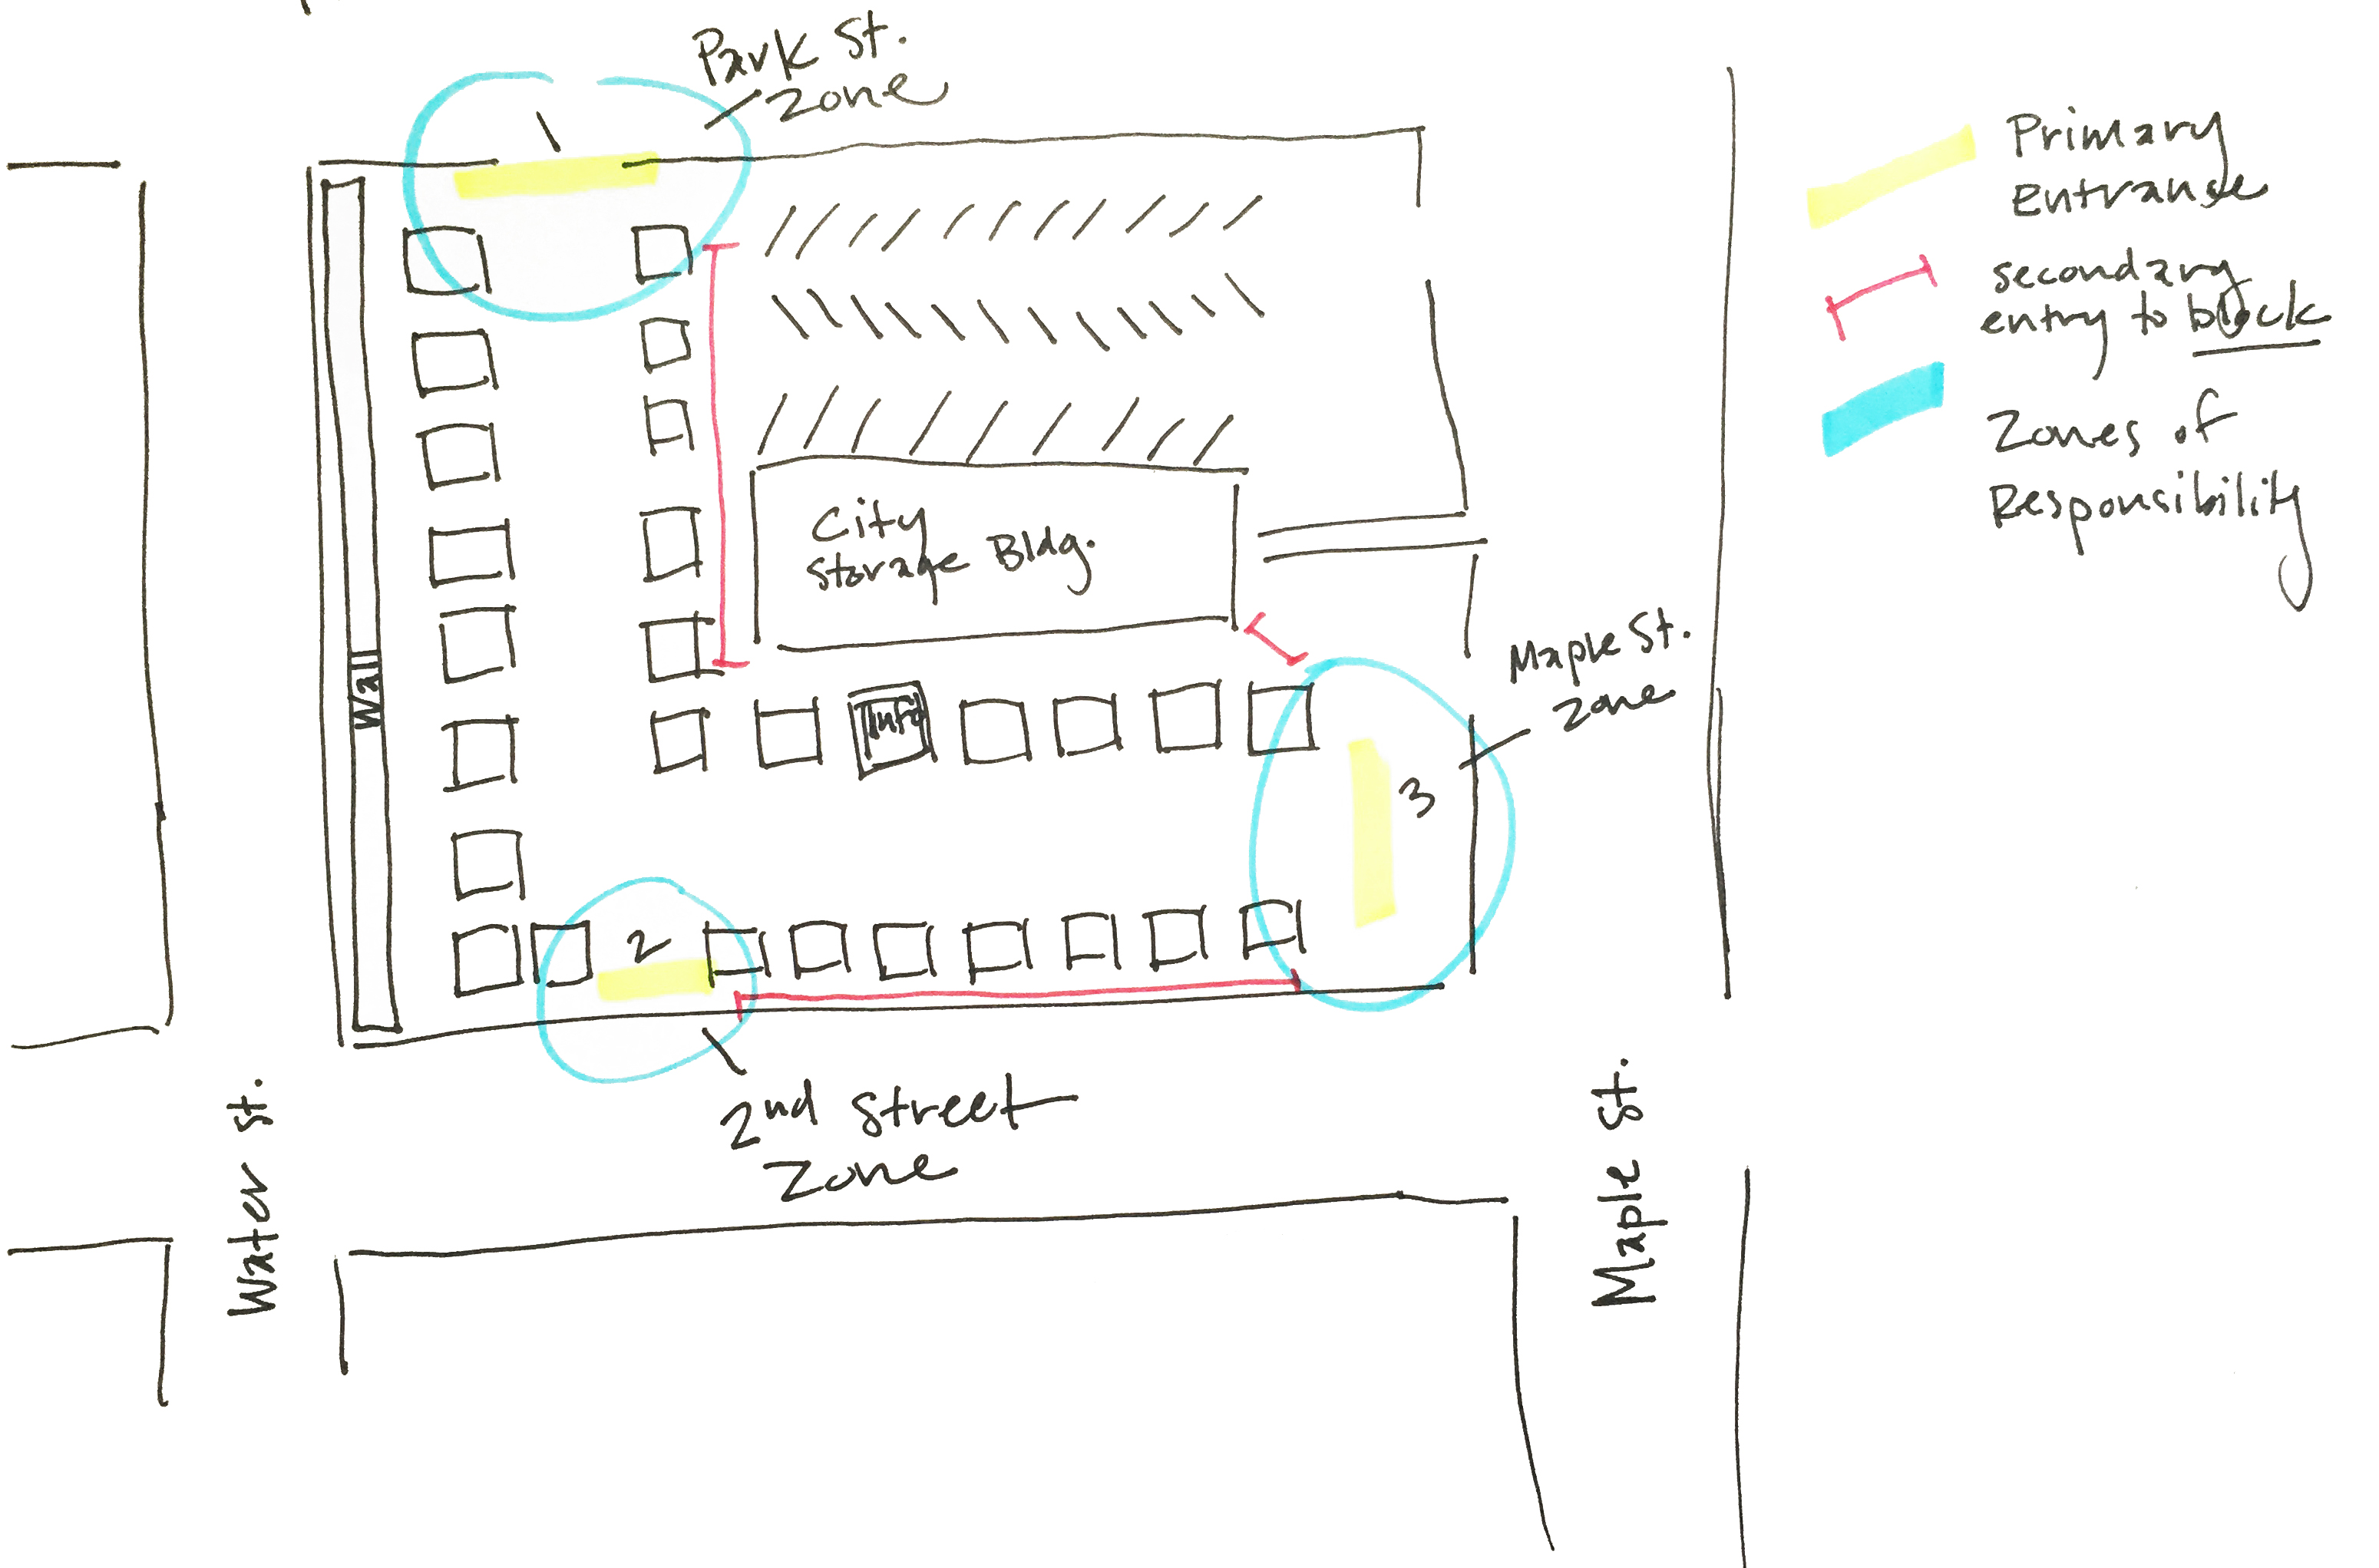 Park St.
Zone
1
Primary
Entranse
secondary
entry to block
Zones of
Responsibility
City
Storage Bldg.
Maple St.
zone
Wall
Info
3
2
2nd Street
Zone
Water St.
Maple St.